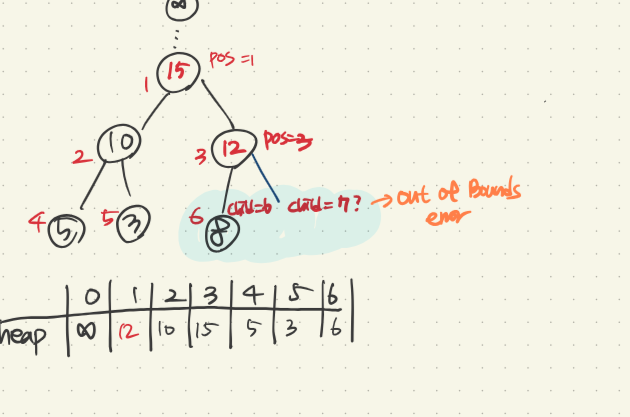 ∞
15 pos=1
1
10 12 pos=3
2 3
4 5 5 3 6 child=6 child=7? → out of Bounds
8 error
0 1 2 3 4 5 6
heap ∞ 12 10 15 5 3 6